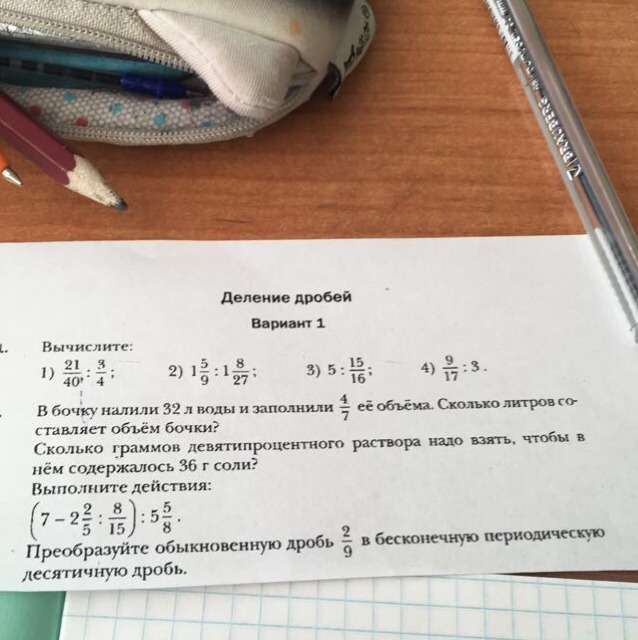 BRAUBERG
Деление дробей
Вариант 1
Вычислите:
1) 21/40 : 3/4; 2) 1 5/9 : 1 8/27; 3) 5 : 15/16; 4) 9/17 : 3.
В бочку налили 32 л воды и заполнили 4/7 её объёма. Сколько литров со-
ставляет объём бочки?
Сколько граммов девятипроцентного раствора надо взять, чтобы в
нём содержалось 36 г соли?
Выполните действия:
(7 − 2 2/5 : 8/15) : 5 5/8.
Преобразуйте обыкновенную дробь 2/9 в бесконечную периодическую
десятичную дробь.